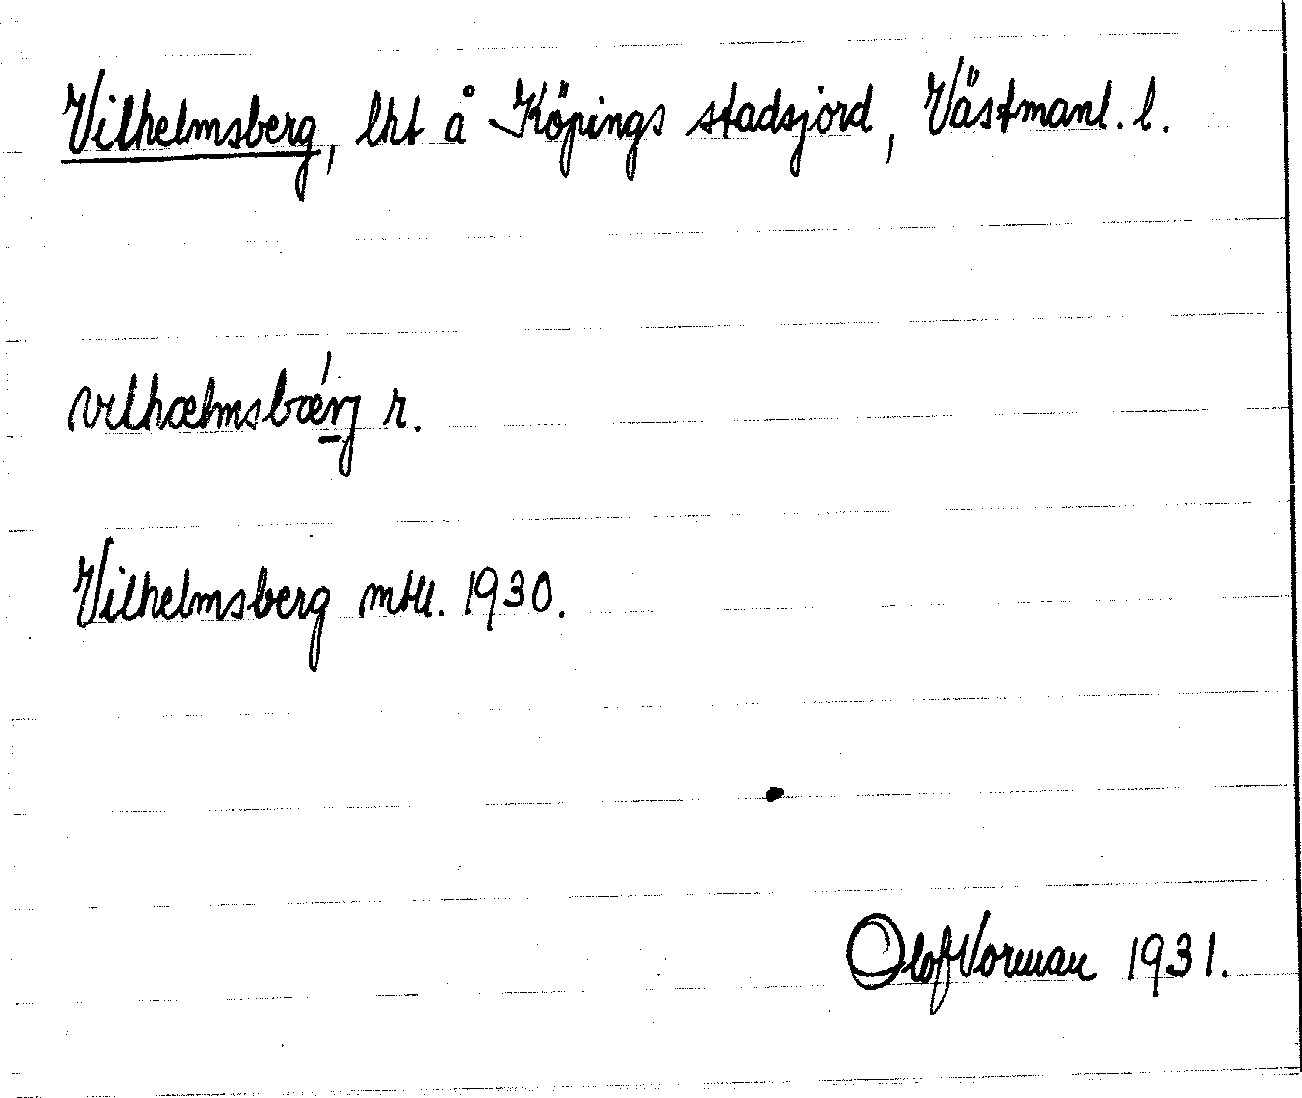 Vilhelmsberg, lht å Köpings stadsjord, Västmanl. l.
vɪlhælmsbærj r.
Vilhelmsberg mtl. 1930.
Olof Vorman 1931.